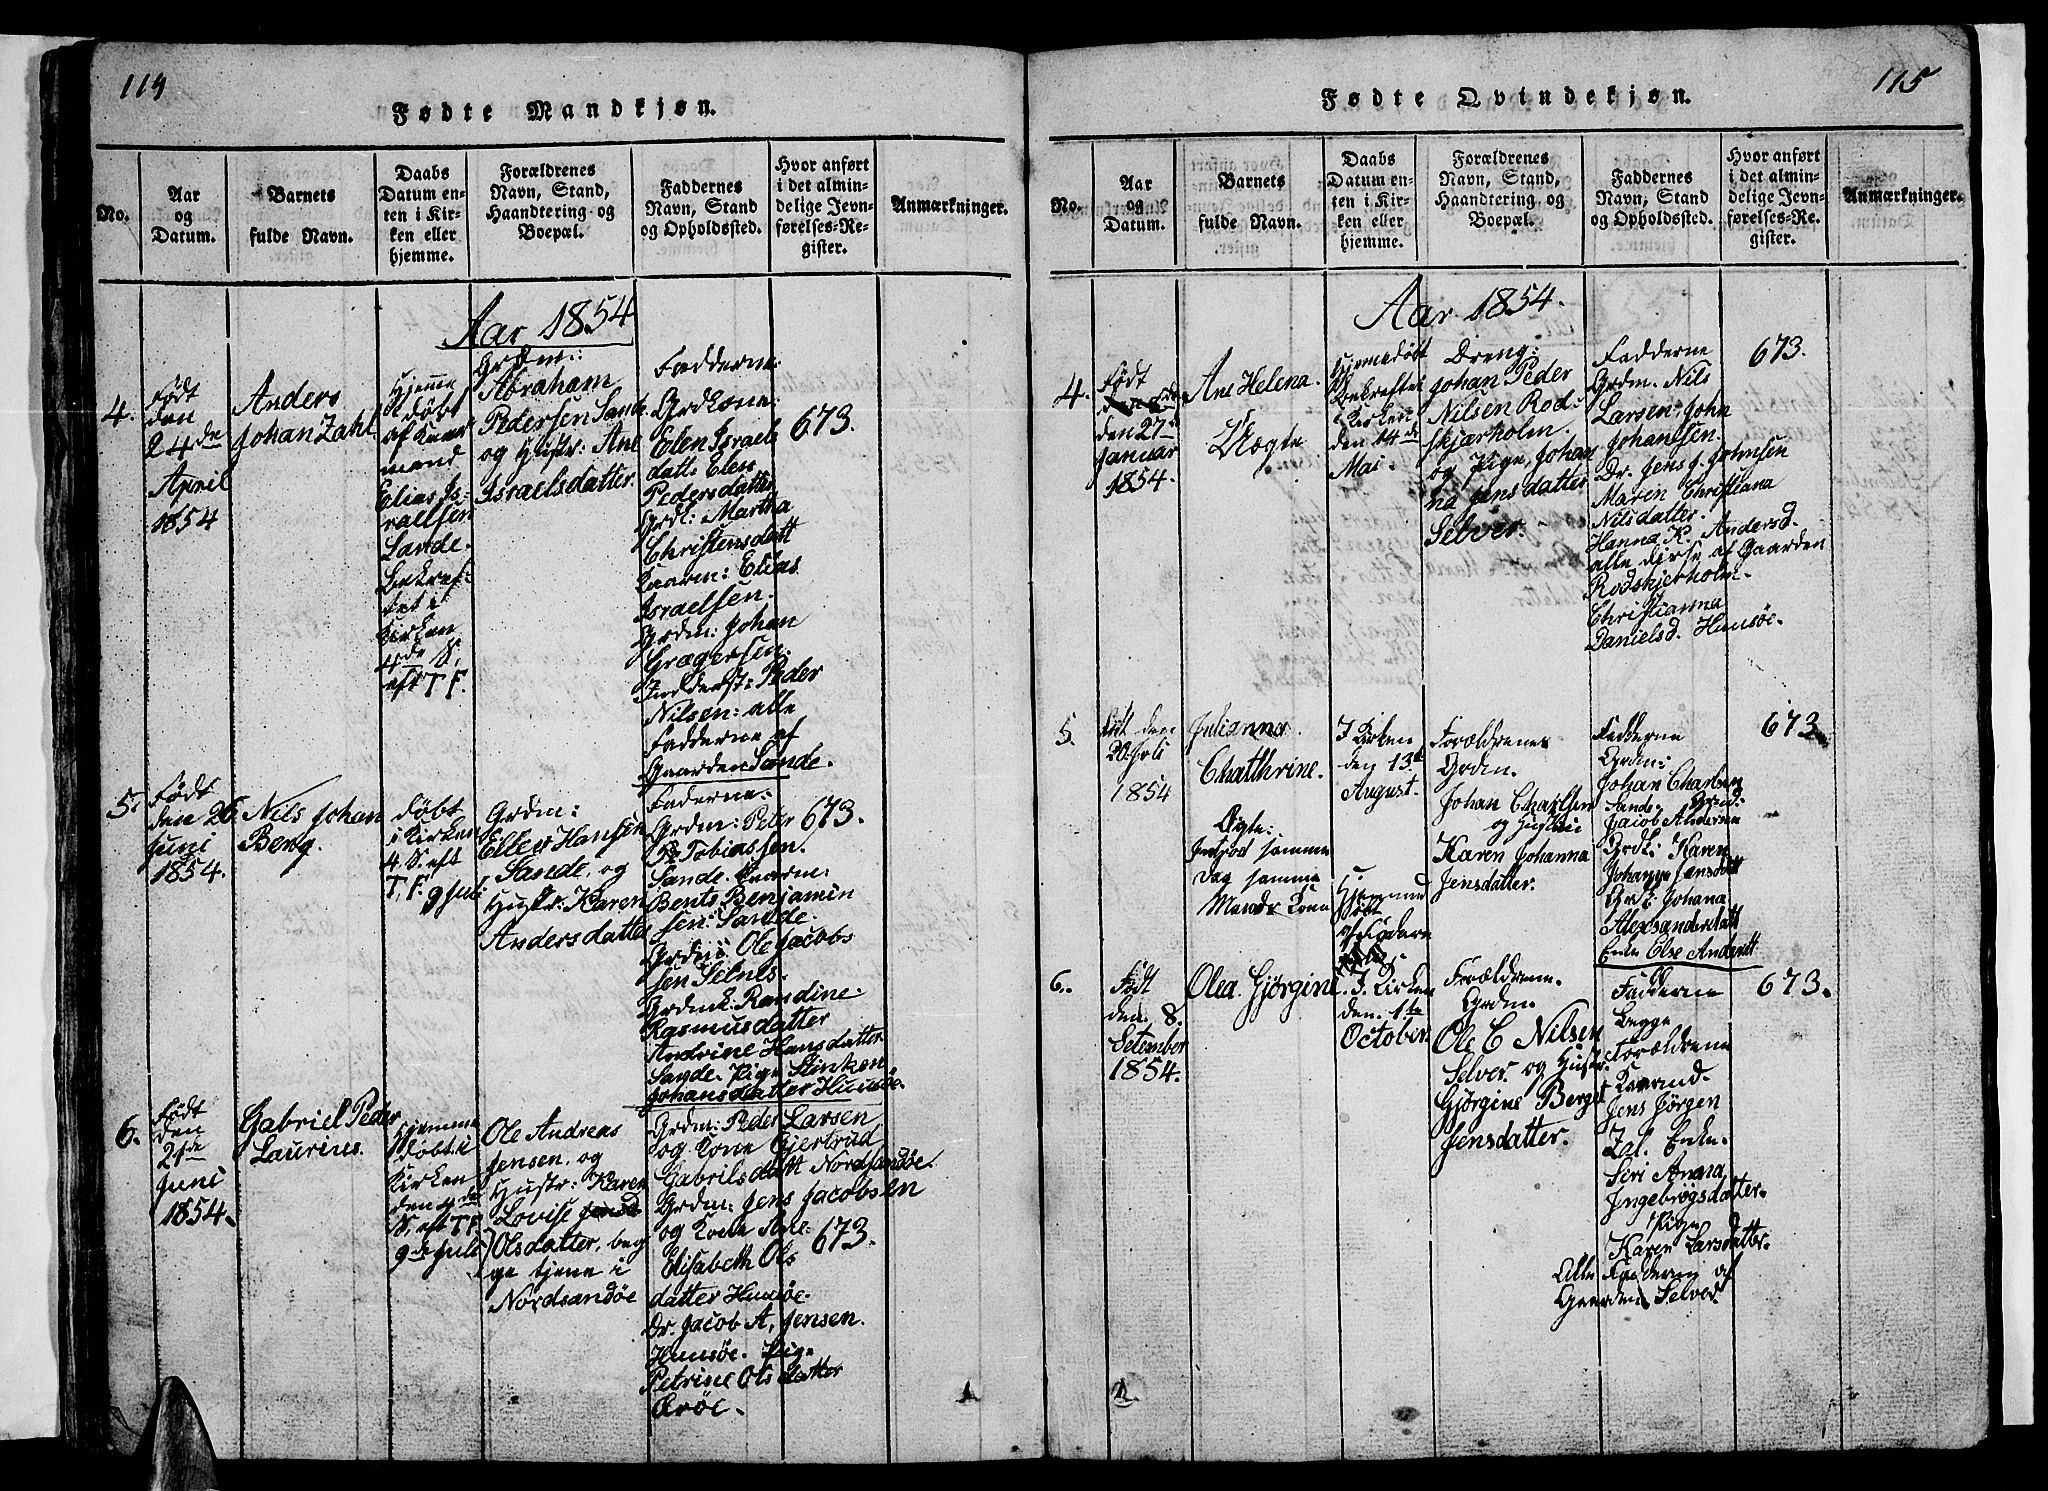 114
Fødte Mandkjøn.
No.
Aar
og
Datum.
Barnets
fulde Navn.
Daabs
Datum en-
ten i Kir-
ken eller
hjemme.
Forældrenes
Navn, Stand,
Haandtering og
Boepæl.
Faddernes
Navn, Stand
og Opholdssted.
Hvor anført
i det almin-
delige Jevn-
førelses-Re-
gister.
Anmærkninger.
Aar 1854
4.
Født
den
24de
April
1854
Anders
Johan Zahl
Hjemme
døbt
af
mand
Elias Is-
raelsen
Sande.
Bekref-
tet i
Kirken
4de S.
eft T F.
Grdm:
Abraham
Pedersen Sande
og Hustr: Ane
Israelsdatter.
Fadderne:
Grdkone:
Elen Israels
datt: Elen
Pedersdatter
Grdk: Martha
Christensdatt
Kaarm: Elias
Israelsen.
Grdm: Johan
Grægersen.
Inderst: Peder
Nilsen: alle
Fadderne af
Gaarden Sande.
673.
5.
Født
den 26
Juni
1854.
Nils Johan
Berg.
døbt
i Kirken
4. S. eft
T. F. 9 Juli
Grdm:
Eller Hansen
Sande, og
Hustr: Karen
Andersdatter
Faderne:
Grdm: Peter
Tobiassen.
Sande. Kaarm:
Bents Benjamin
sen: Sande.
Grdm: Ole Jacobs
sen Selnes.
Grdmk: Randine
Rasmusdatter
Andrine Hansdatter
Sande. Pige Stinken
Johansdatter Huusøe.
673.
6.
Født
den
21de
Juni
1854.
Gabriel Peder
Laurins.
Hjemme
døbt i
Kirken
den 4de
S. eft T F.
9de Juli
Ole Andreas
Jensen, og
Hustr: Karen
Lovise
Olsdatter, beg
ge tjene i
Nordsandøe
Grdm: Peder Larsen
og Kone Gjertrud
Gabrilsdatt Nordsandøe.
Grdm: Jens Jacobsen
og Kone Ane
Elisabeth Ols
datter Huusøe.
Dr. Jacob A. Jensen.
Huusøe. Pige
Petrine Olsdatter
Ærøe.
673.
115
Fødte Qvindekjøn.
No.
Aar
og
Datum.
Barnets
fulde Navn.
Daabs
Datum en-
ten i Kir-
ken eller
hjemme.
Forældrenes
Navn, Stand,
Haandtering og
Boepæl.
Faddernes
Navn, Stand
og Opholdssted.
Hvor anført
i det almin-
delige Jevn-
førelses-Re-
gister.
Anmærkninger.
Aar 1854.
4.
Født
den 27de
Januar
1854.
Ane Helena.
Uægte
Hjemedøbt
Bekreftet
i Kirken
den 14de
Mai.
Dreng:
Johan Peder
Nilsen Rod-
skjærholm.
og Pige, Johan
na Jensdatter
Selver.
Fadderne
Grdm. Nils
Larsen, John
Johansen.
Dr. Jens J. Johnsen
Maren Christiana
Nilsdatter.
Hanna K. Andersd.
alle disse af Gaarden
Rodskjerholm.
Christianna
Danielsd. Huusøe.
673.
5.
Født den
20 Juli
1854
Julianna
Chatthrine.
Ægte:
samme
Dag samme
Kone
I Kirken
den 13de
August.
Hjemme
døbt
af Fadere
Forældrene
Grdm.
Johan Charlsen
og Hustrui
Karen Johanna
Jensdatter.
Fadderne
Grdm:
Johan Charlsen
Sande.
Jacob Andersen
Grdk: Karen
Johanna Jensdatt
Grdk. Johana
Alexsandersdatt
Enke Olse Andersdtt
673.
6.
Født
den 8.
Setember
1854.
Olea Gjørgine
I Kirken
den 1te
October
Forældrene.
Grdm.
Ole C Nilsen
Selver. og Hustr.
Gjørgine Berget
Jensdatter.
Fadderne
begge
Forældrene
Kaarmd.
Jens Jørgen
Zal. Enke.
Siri Anna
Ingebrogsdatter.
Pige
Karen Larsdatter.
Alle Fadderne af
Gaarden Selver.
673.